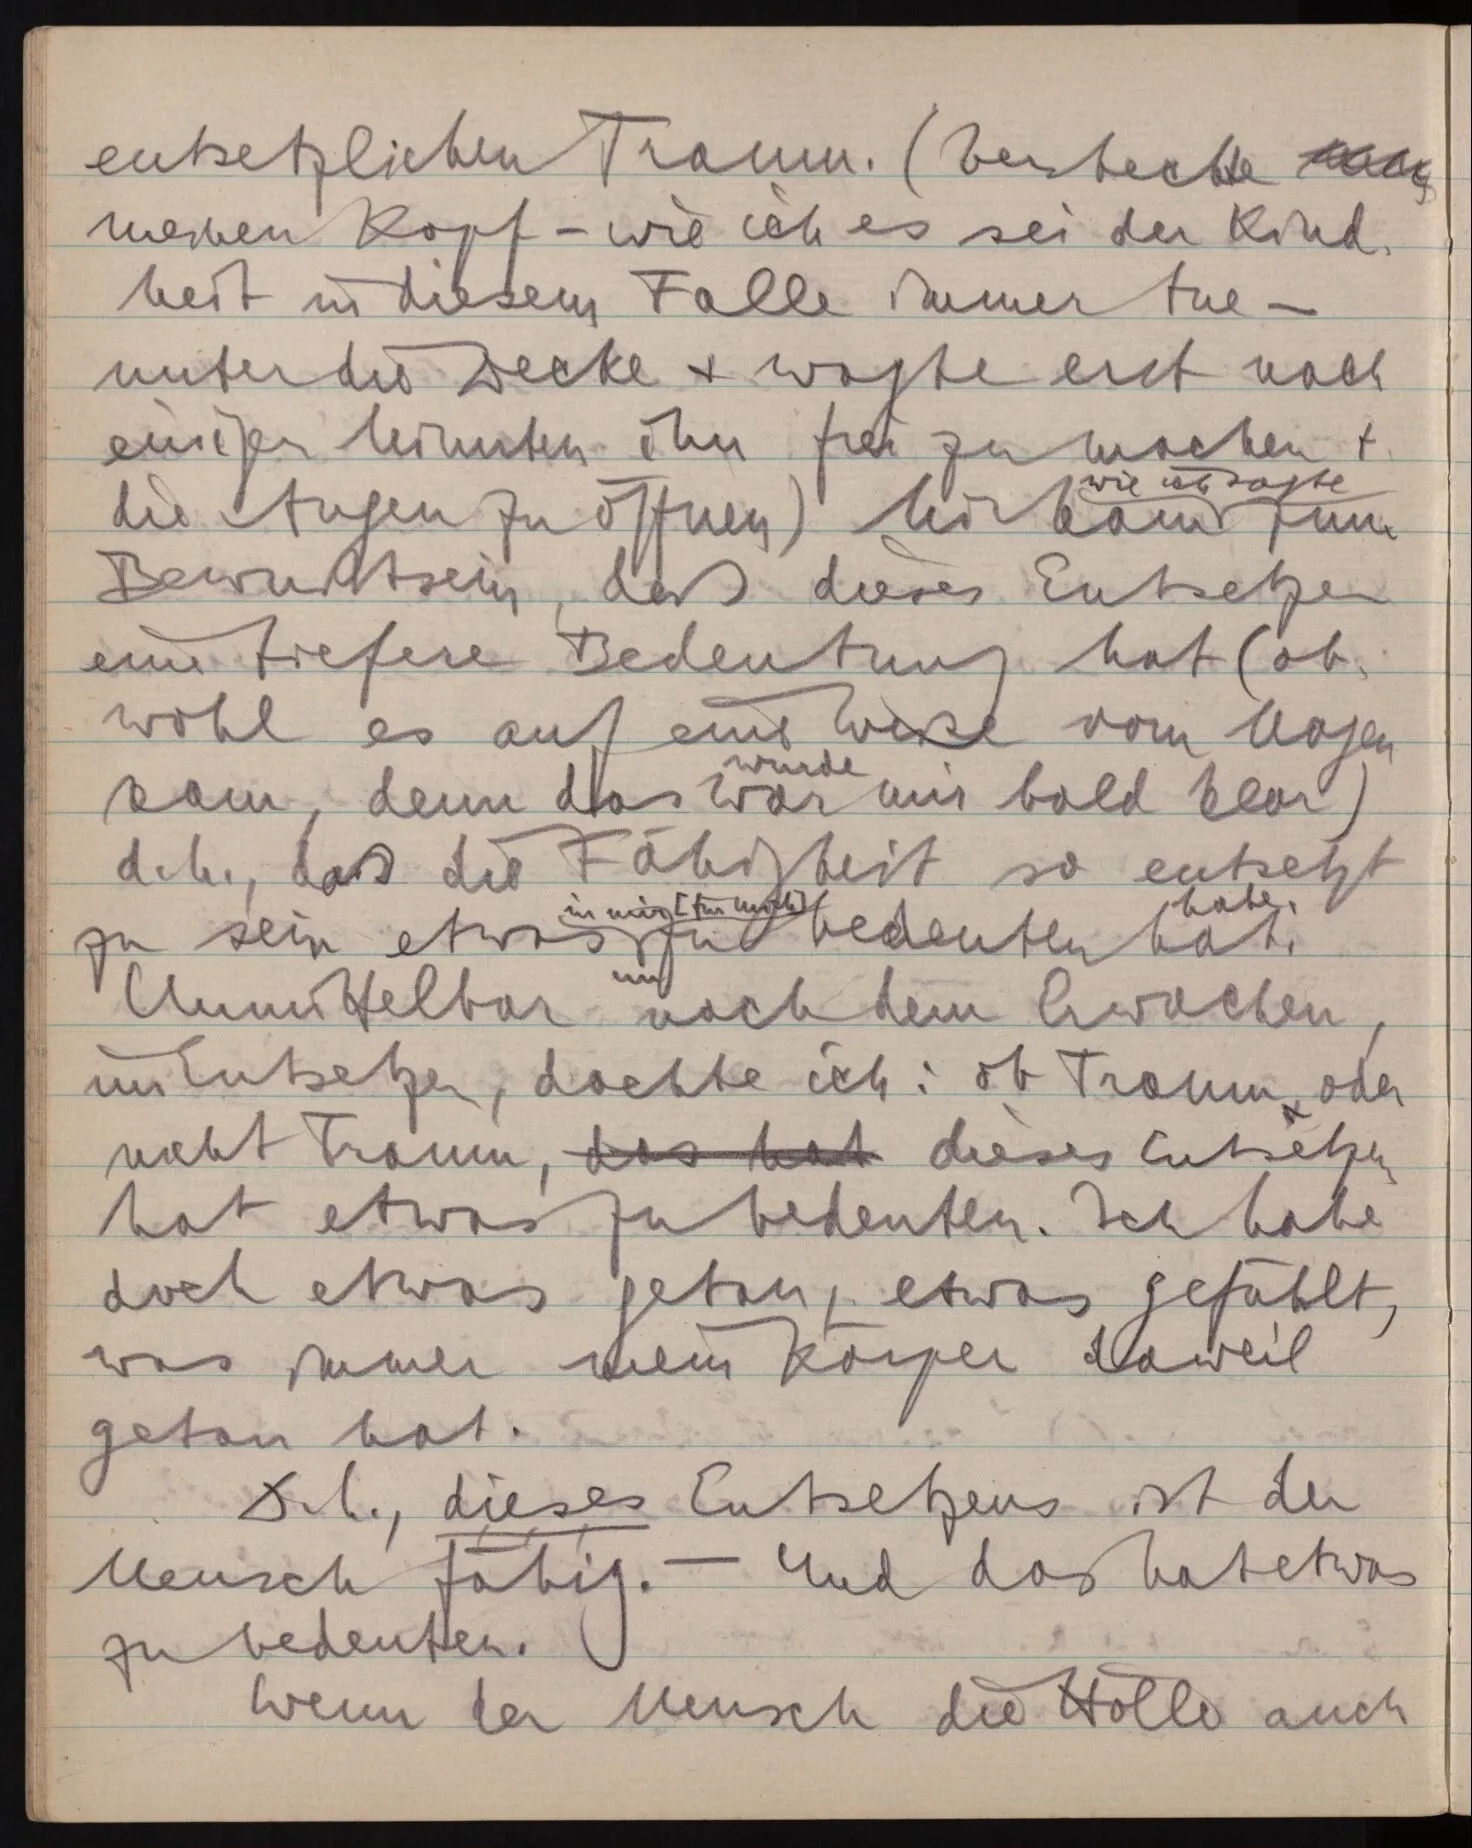 entsetzlichen Traum. (versteckte
meinen Kopf – wie ich es seit der Kind-
heit in diesem Falle immer tue –
unter die Decke + wagte erst nach
einigen Minuten ihn frei zu machen +
die Augen zu öffnen) Mir kam wie ich sagte zum
Bewußtsein, daß dieses Entsetzen
eine tiefere Bedeutung hat (ob-
wohl es auf eine Weise vom Magen
kam, denn das war wurde mir bald klar)
d.h., daß die Fähigkeit so entsetzt
zu sein etwas in mir [für mich] zu bedeuten hat. habe.
Unmittelbar nach dem Erwachen,
im Entsetzen, dachte ich: ob Traum oder
nicht Traum, das hat dieses Entsetzen
hat etwas zu bedeuten. Ich habe
doch etwas getan, etwas gefühlt,
was immer mein Körper daweil
getan hat.
D.h., dieses Entsetzens ist der
Mensch fähig. – Und das hat etwas
zu bedeuten.
Wenn der Mensch die Hölle auch